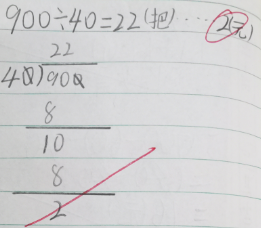 900÷40=22(把)……2(元)
22
40)900
8
10
8
2